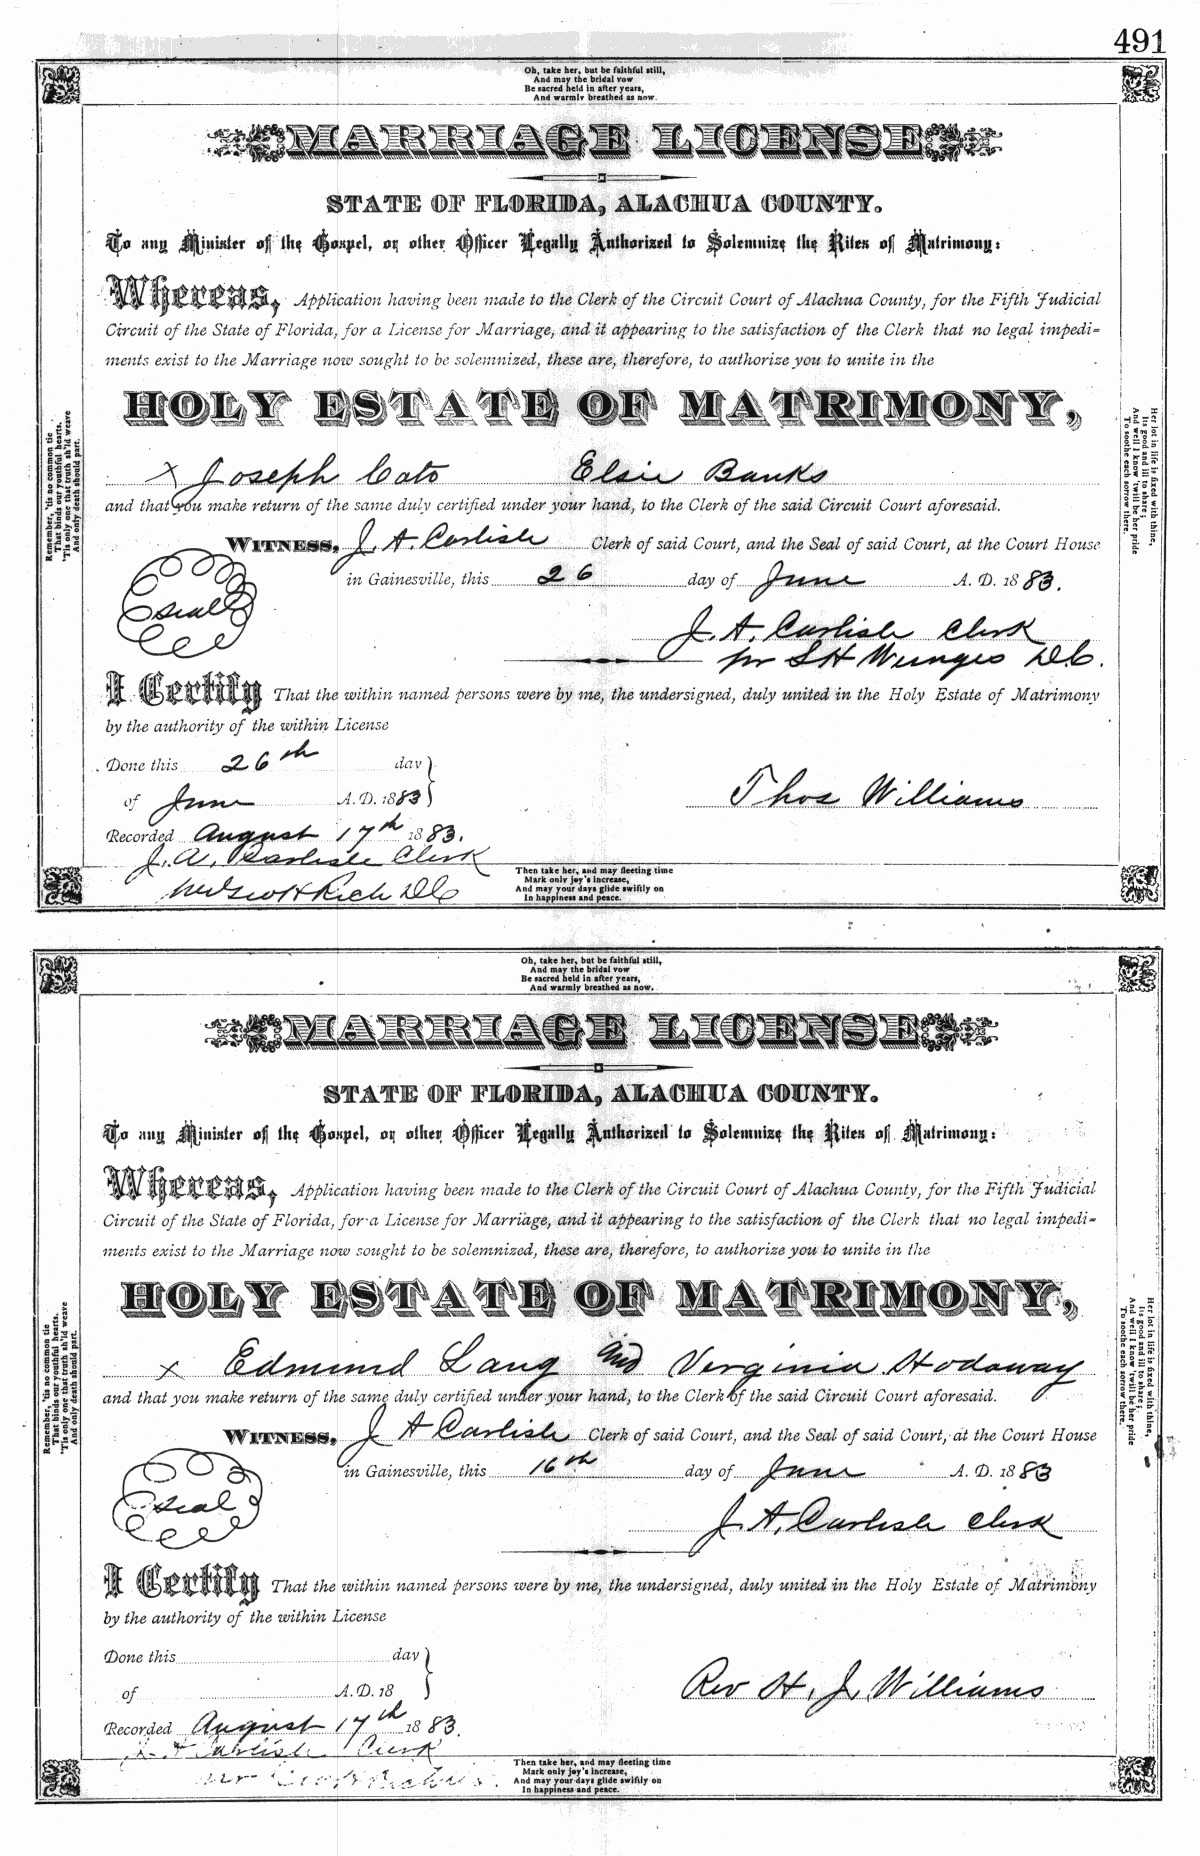 491
Oh, take her, but be faithful still,
And may the bridal vow
Be sacred held in after years,
And warmly breathed as now.
MARRIAGE LICENSE
STATE OF FLORIDA, ALACHUA COUNTY.
To any Minister of the Gospel, or other Officer Legally Authorized to Solemnize the Rites of Matrimony:
Whereas, Application having been made to the Clerk of the Circuit Court of Alachua County, for the Fifth Judicial
Circuit of the State of Florida, for a License for Marriage, and it appearing to the satisfaction of the Clerk that no legal impedi-
ments exist to the Marriage now sought to be solemnized, these are, therefore, to authorize you to unite in the
HOLY ESTATE OF MATRIMONY,
x Joseph Cato Elsie Banks
and that you make return of the same duly certified under your hand, to the Clerk of the said Circuit Court aforesaid.
WITNESS, J. A. Carlisle Clerk of said Court, and the Seal of said Court, at the Court House
in Gainesville, this 26 day of June A. D. 1883.
Seal
J. A. Carlisle Clerk
pr S H D.C.
I Certify That the within named persons were by me, the undersigned, duly united in the Holy Estate of Matrimony
by the authority of the within License
Done this 26th day
of June A. D. 1883
Thos Williams
Recorded August 17th 1883.
J. A. Carlisle Clerk
per Geo H Rich D C
Then take her, and may fleeting time
Mark only joy's increase,
And may your days glide swiftly on
In happiness and peace.
Remember, 'tis no common tie
That binds our youthful hearts.
'Tis only one that truth sh'ld weave
And only death should part.
Her lot in life is fixed with thine,
Its good and ill to share;
And well I know 'twill be her pride
To soothe each sorrow there.
Oh, take her, but be faithful still,
And may the bridal vow
Be sacred held in after years,
And warmly breathed as now.
MARRIAGE LICENSE
STATE OF FLORIDA, ALACHUA COUNTY.
To any Minister of the Gospel, or other Officer Legally Authorized to Solemnize the Rites of Matrimony:
Whereas, Application having been made to the Clerk of the Circuit Court of Alachua County, for the Fifth Judicial
Circuit of the State of Florida, for a License for Marriage, and it appearing to the satisfaction of the Clerk that no legal impedi-
ments exist to the Marriage now sought to be solemnized, these are, therefore, to authorize you to unite in the
HOLY ESTATE OF MATRIMONY,
x Edmund Lang and Verginia Hodaway
and that you make return of the same duly certified under your hand, to the Clerk of the said Circuit Court aforesaid.
WITNESS, J A Carlisle Clerk of said Court, and the Seal of said Court, at the Court House
in Gainesville, this 16th day of June A. D. 1883
Seal
J. A. Carlisle Clerk
I Certify That the within named persons were by me, the undersigned, duly united in the Holy Estate of Matrimony
by the authority of the within License
Done this day
of A. D. 18
Rev H. J. Williams
Recorded August 17th 1883.
J. A Carlisle Clerk
Then take her, and may fleeting time
Mark only joy's increase,
And may your days glide swiftly on
In happiness and peace.
Remember, 'tis no common tie
That binds our youthful hearts.
'Tis only one that truth sh'ld weave
And only death should part.
Her lot in life is fixed with thine,
Its good and ill to share;
And well I know 'twill be her pride
To soothe each sorrow there.